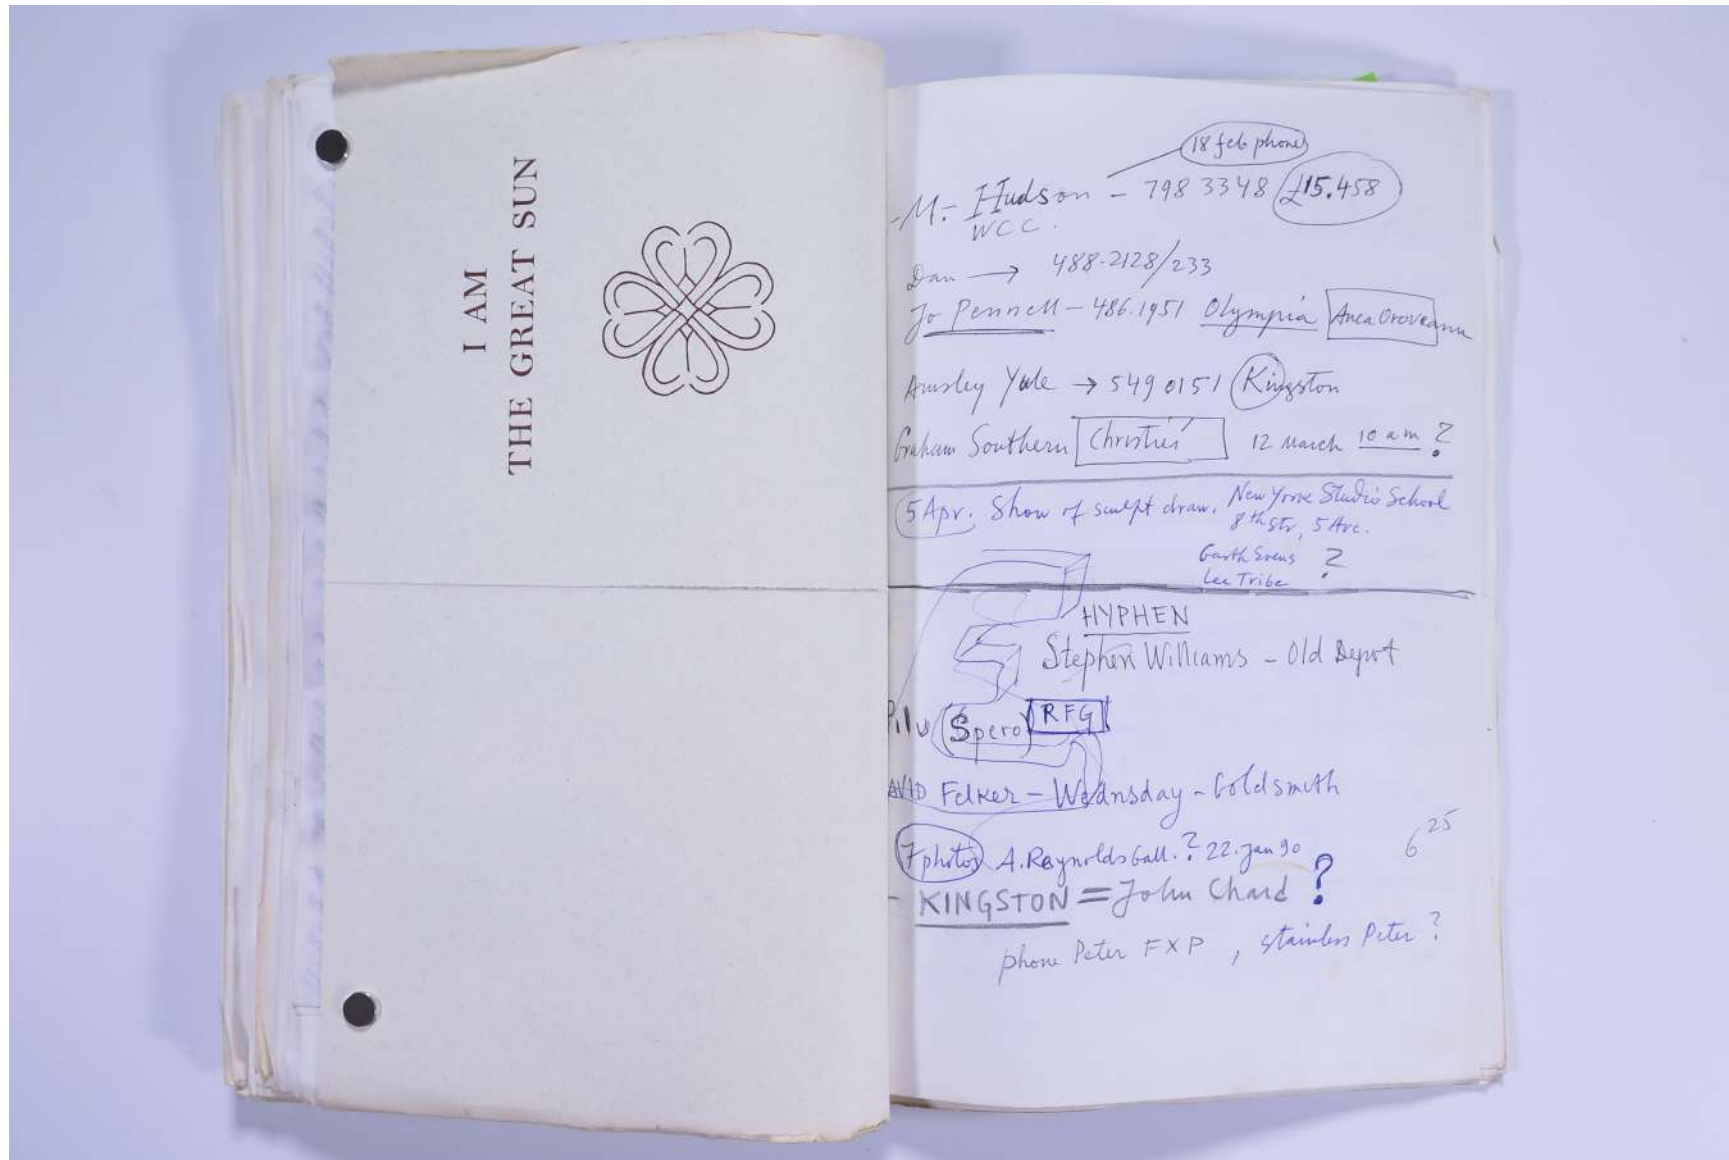 I AM
THE GREAT SUN
18 feb phone
- M. - Hudson - 798 3348 £15.458
WCC.
Dan → 488-2128/233
Jo Pennell - 486.1951 Olympia Anca Oroveanu
Yule → 549 0151 Kingston
Graham Southern Christies' 12 March 10 am ?
5 Apr. Show of sculpt draw. New York Studio School
8th Str, 5 Ave.
Garth Evens
Lee Tribe ?
HYPHEN
Stephen Williams - Old Depot
(Spero) RFG
AVID Felker - Wednsday - Goldsmith
7 photos A. Reynolds Gall. ? 22. Jan 90 6 25
- KINGSTON = John Chard ?
phone Peter FXP , stainless Peter ?